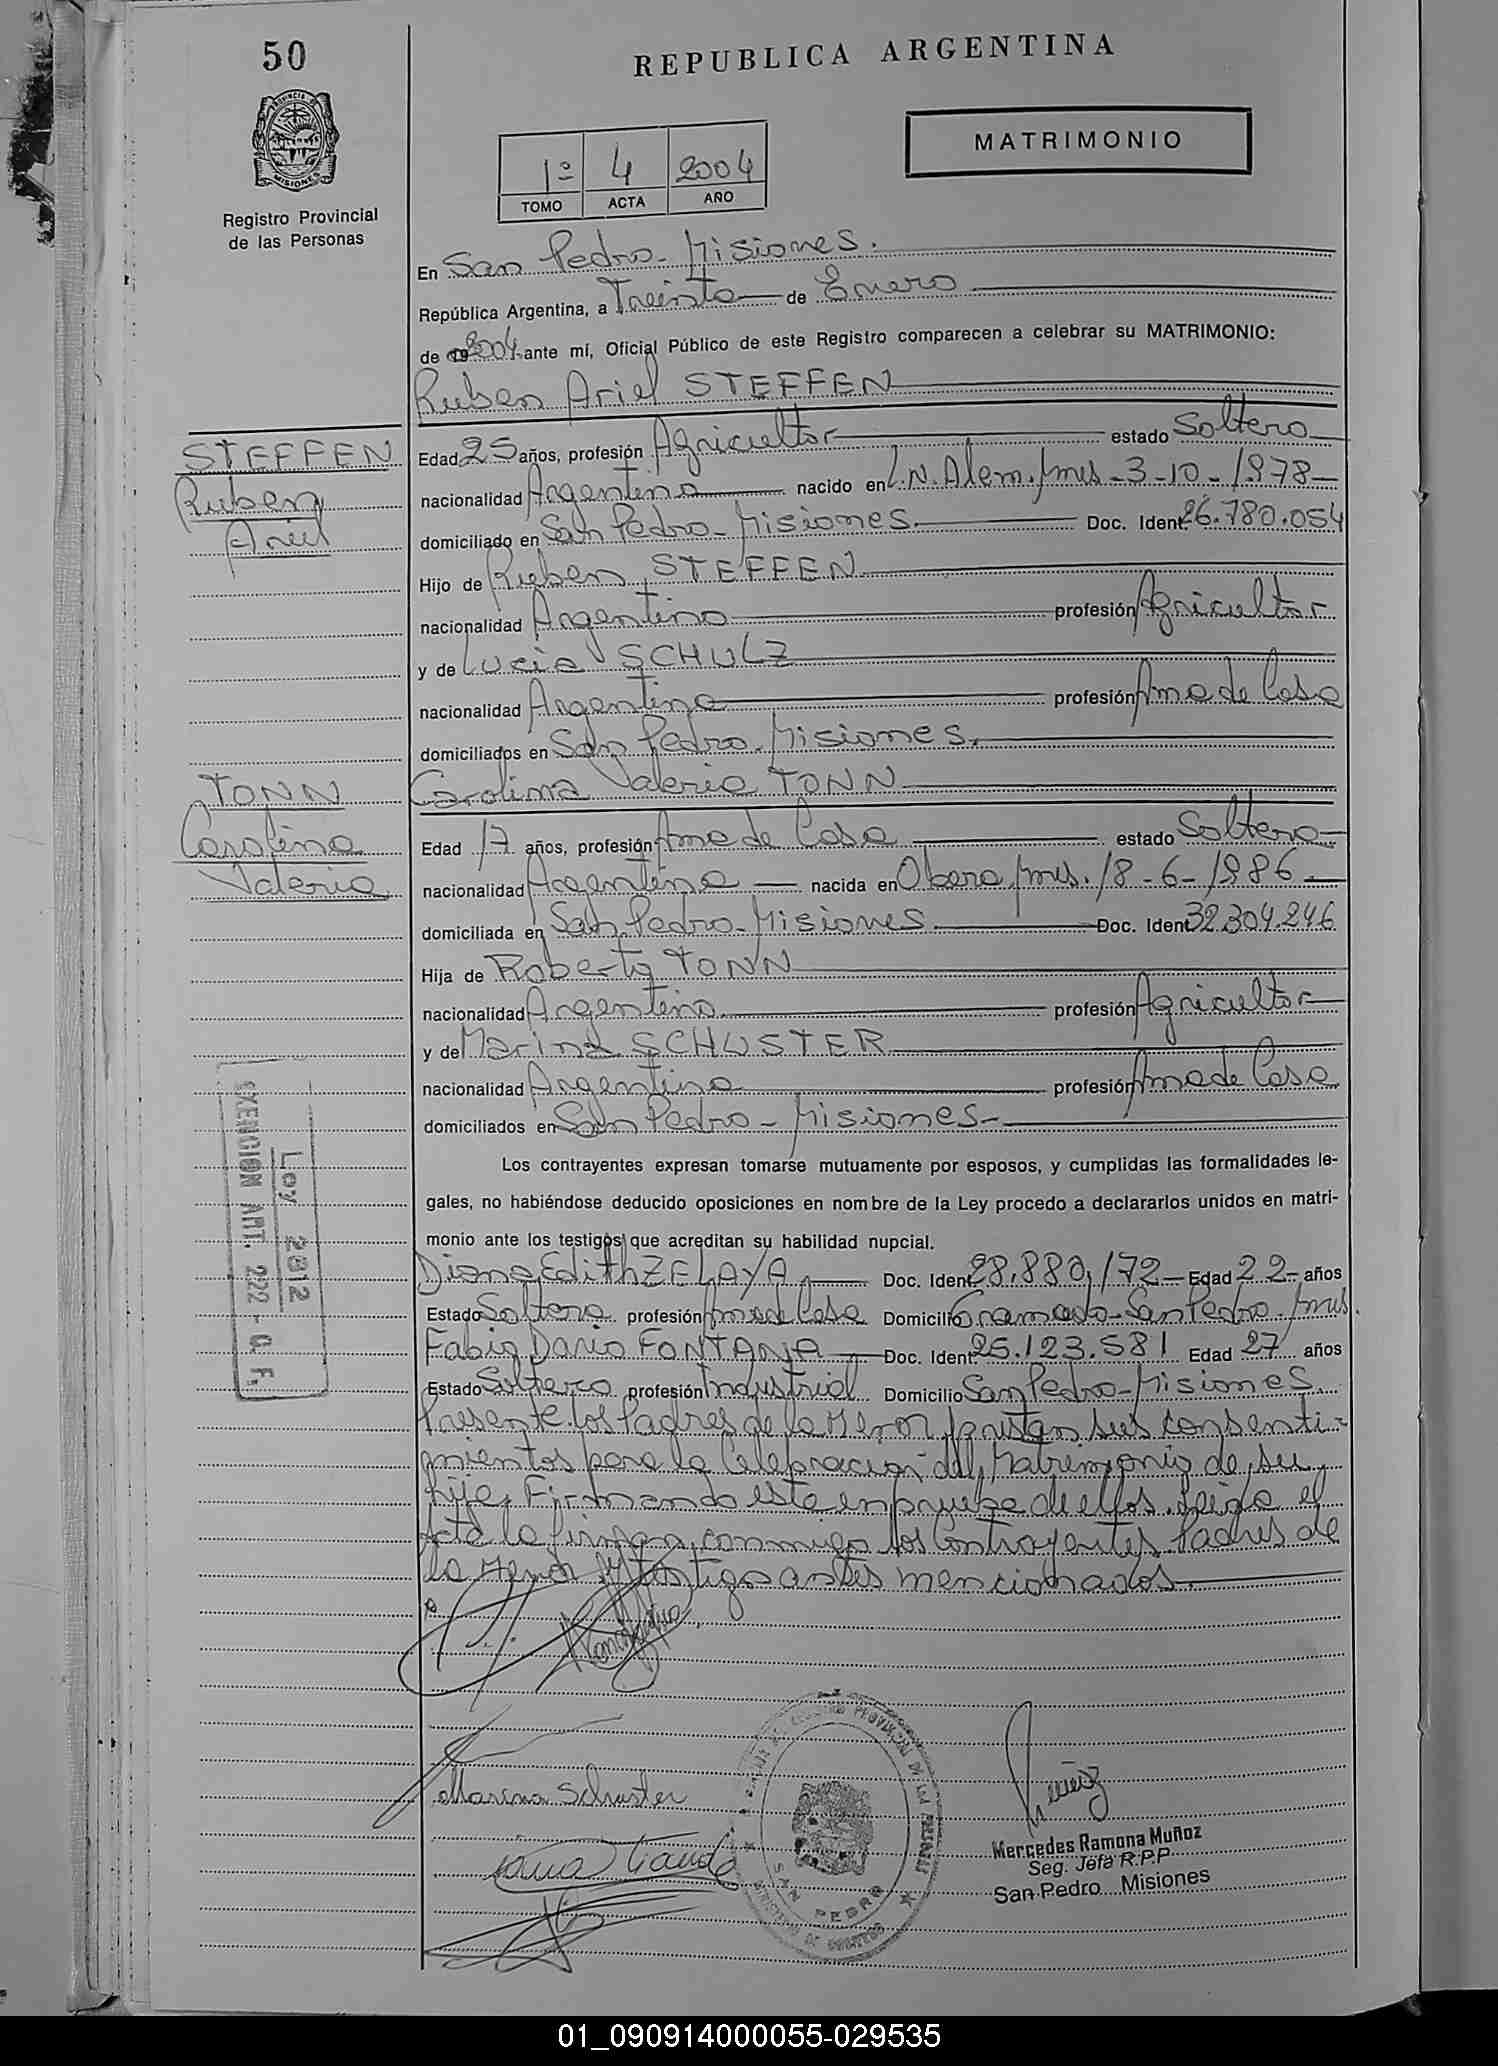 50
REPUBLICA ARGENTINA
PROVINCIA DE
MISIONES
Registro Provincial
de las Personas
MATRIMONIO
1º 4 2004
TOMO ACTA AÑO
En San Pedro - Misiones.
República Argentina, a Treinta de Enero
de 2004 ante mí, Oficial Público de este Registro comparecen a celebrar su MATRIMONIO:
Ruben Ariel STEFFEN
STEFFEN
Ruben
Ariel
Edad 25 años, profesión Agricultor estado Soltero
nacionalidad Argentina nacido en L.N. Alem, Mns - 3-10-1978-
domiciliado en San Pedro - Misiones. Doc. Ident. 26.780.054
Hijo de Ruben STEFFEN
nacionalidad Argentino profesión Agricultor
y de Lucia SCHULZ
nacionalidad Argentina profesión Ama de Casa
domiciliados en San Pedro - Misiones.
TONN
Carolina
Valeria
Carolina Valeria TONN
Edad 17 años, profesión Ama de Casa estado Soltera
nacionalidad Argentina nacida en Obera, Mns. 18-6-1986
domiciliada en San Pedro - Misiones Doc. Ident. 32.304.246
Hija de Roberto TONN
nacionalidad Argentino profesión Agricultor
y de Marina SCHUSTER
nacionalidad Argentina profesión Ama de Casa
domiciliados en San Pedro - Misiones-
Los contrayentes expresan tomarse mutuamente por esposos, y cumplidas las formalidades le-
gales, no habiéndose deducido oposiciones en nombre de la Ley procedo a declararlos unidos en matri-
monio ante los testigos que acreditan su habilidad nupcial.
Ley 2812
EXENCION ART. 222 -
Diana Edith ZELAYA Doc. Ident. 28.880.172 - Edad 22 - años
Estado Soltera profesión Ama de Casa Domicilio Gramado - San Pedro - Mns.
Fabio Dario FONTANA Doc. Ident. 25.123.581 Edad 27 años
Estado Soltero profesión Industrial Domicilio San Pedro - Misiones.
Presente los Padres de la Menor prestan sus consenti-
mientos para la Celebracion del Matrimonio de su
hija, Firmando esta en prueba de ellos. Leida el
Acta la firman conmigo los Contrayentes, Padres de
la Menor y testigos antes mencionados.
Marina Schuster
Muñoz
SAN PEDRO
Mercedes Ramona Muñoz
Seg. Jefa R.P.P.
San Pedro Misiones
01_090914000055-029535